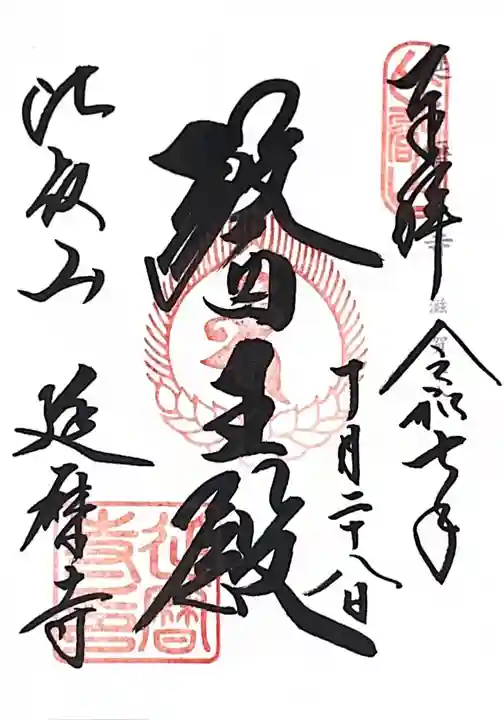 奉拝
令和七年
十月二十八日
醫王殿
比叡山 延暦寺